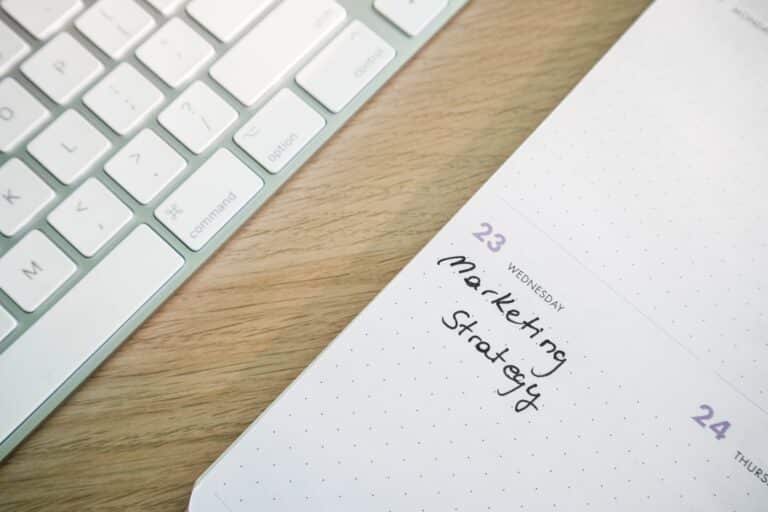 P
O
L
K
M
control
option
command
MONDAY
23
WEDNESDAY
Marketing
Strategy
24
THURS